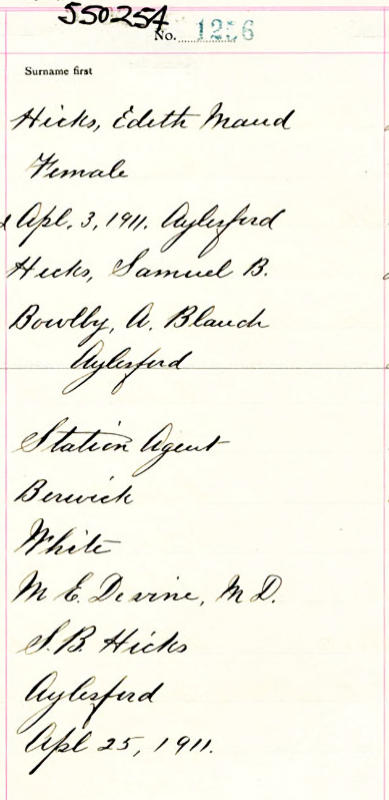 550254
No. 1256
Surname first
Hicks, Edith Maud
Female
Apl. 3, 1911. Aylesford
Hicks, Samuel B.
Bowlby, A. Blanch
Aylesford
Station Agent
Berwick
White
M. E. Devine, M.D.
S. B. Hicks
Aylesford
Apl 25, 1911.